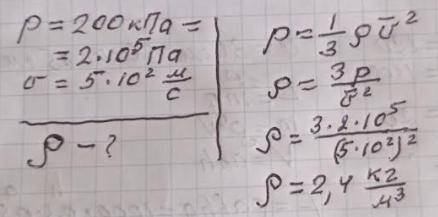 p = 200 кПа =
= 2·10⁵ Па
υ = 5·10² м/с
ρ – ?
p = 1/3 ρ ῡ²
ρ = 3p/ῡ²
ρ = 3·2·10⁵/(5·10²)²
ρ = 2,4 кг/м³